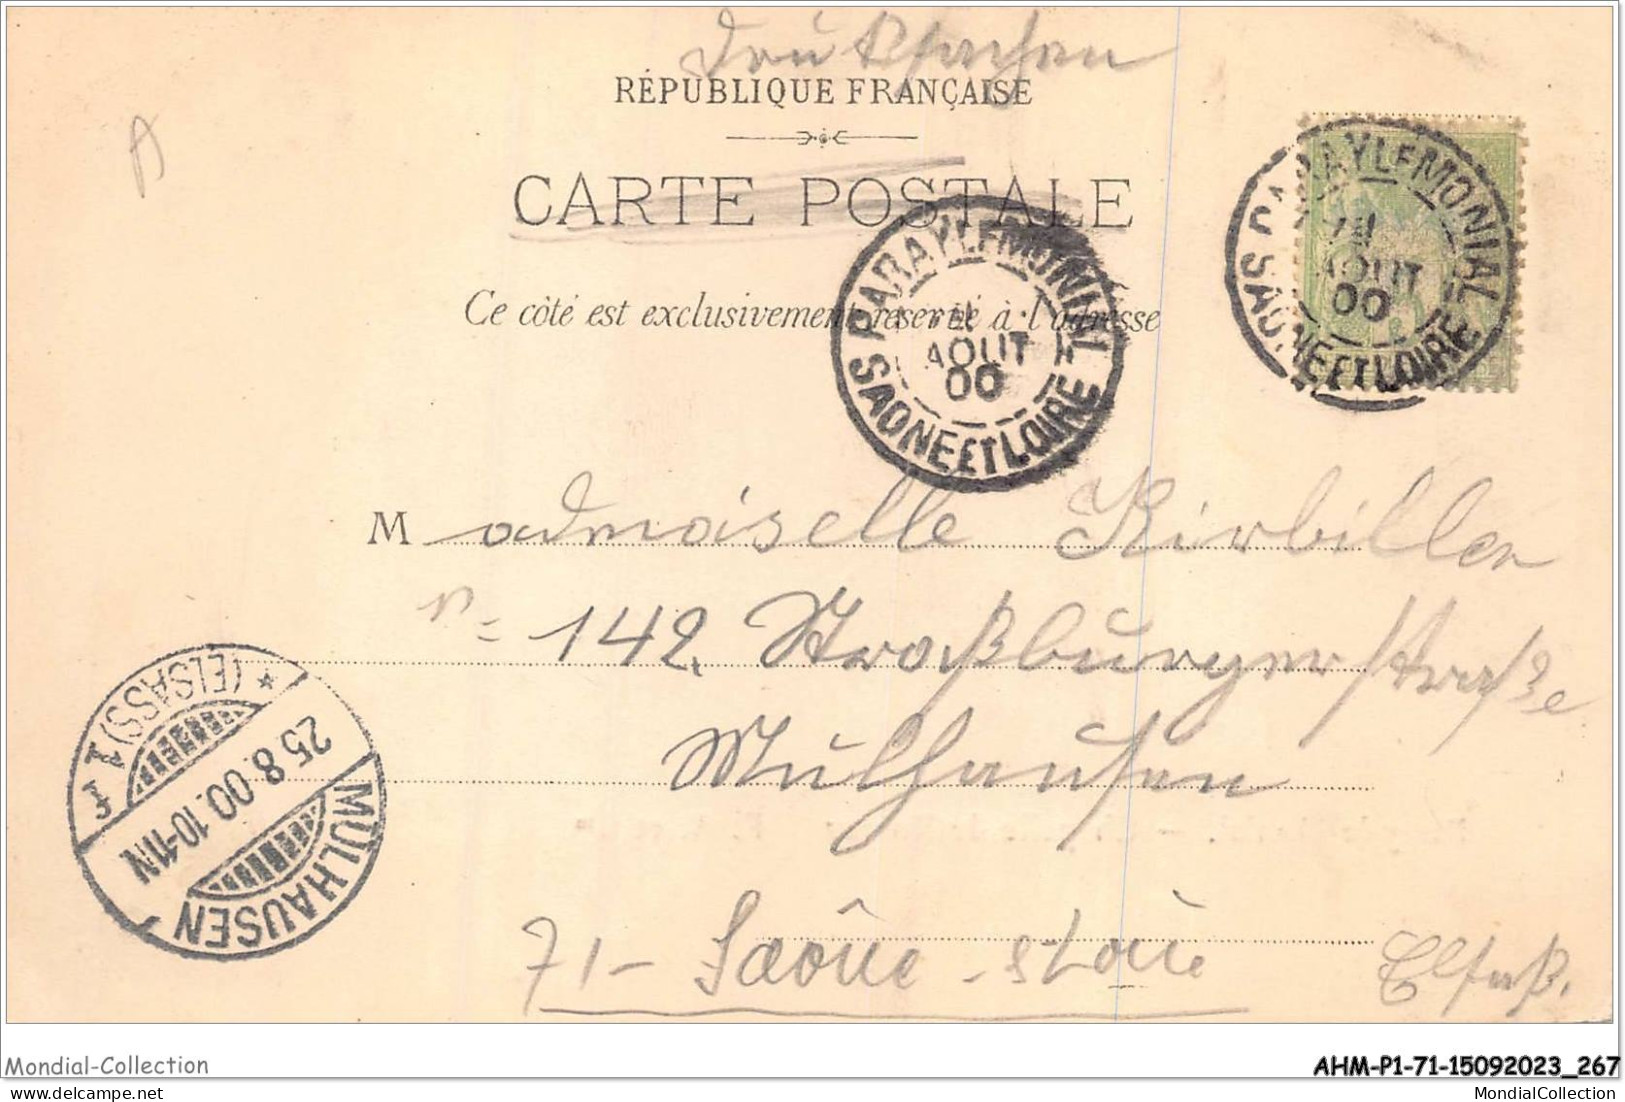 Drucksachen
RÉPUBLIQUE FRANÇAISE
A
CARTE POSTALE
Ce côté est exclusivement réservé à l'adresse
PARAY LE MONIAL
AOUT
00
SAONE ET LOIRE
PARAY LE MONIAL
AOUT
00
SAONE ET LOIRE
Mademoiselle Kirbiller
n= 142. Straßburgerstraße
Mülhausen
Elsaß.
71- Saône-et Loire
(ELSASS) 1 f
25.8.00.10-11N
MÜLHAUSEN
Mondial-Collection
AHM-P1-71-15092023_267
MondialCollection